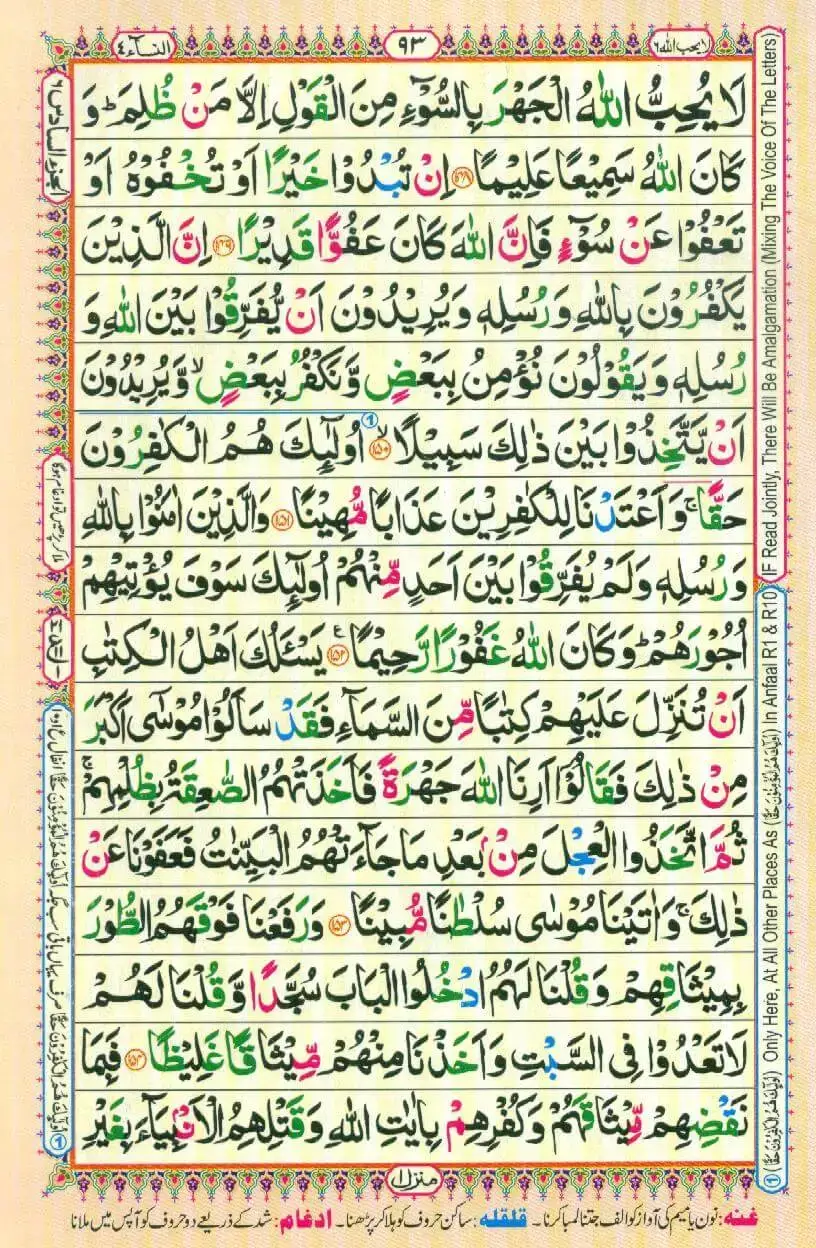 لا يحب الله ٦
٩٣
النسآء ٤
لَا يُحِبُّ اللّٰهُ الْجَهْرَ بِالسُّوْٓءِ مِنَ الْقَوْلِ اِلَّا مَنْ ظُلِمَ ؕ وَ
كَانَ اللّٰهُ سَمِيْعًا عَلِيْمًا ﴿۱۴۸﴾ اِنْ تُبْدُوْا خَيْرًا اَوْ تُخْفُوْهُ اَوْ
تَعْفُوْا عَنْ سُوْٓءٍ فَاِنَّ اللّٰهَ كَانَ عَفُوًّا قَدِيْرًا ﴿۱۴۹﴾ اِنَّ الَّذِيْنَ
يَكْفُرُوْنَ بِاللّٰهِ وَرُسُلِهٖ وَيُرِيْدُوْنَ اَنْ يُّفَرِّقُوْا بَيْنَ اللّٰهِ وَ
رُسُلِهٖ وَيَقُوْلُوْنَ نُؤْمِنُ بِبَعْضٍ وَّنَكْفُرُ بِبَعْضٍ ۙ وَّيُرِيْدُوْنَ
اَنْ يَّتَّخِذُوْا بَيْنَ ذٰلِكَ سَبِيْلًا ۙ﴿۱۵۰﴾ اُولٰٓئِكَ هُمُ الْكٰفِرُوْنَ
حَقًّا ۚ وَاَعْتَدْنَا لِلْكٰفِرِيْنَ عَذَابًا مُّهِيْنًا ﴿۱۵۱﴾ وَالَّذِيْنَ اٰمَنُوْا بِاللّٰهِ
وَرُسُلِهٖ وَلَمْ يُفَرِّقُوْا بَيْنَ اَحَدٍ مِّنْهُمْ اُولٰٓئِكَ سَوْفَ يُؤْتِيْهِمْ
اُجُوْرَهُمْ ؕ وَكَانَ اللّٰهُ غَفُوْرًا رَّحِيْمًا ﴿۱۵۲﴾ يَسْـَٔلُكَ اَهْلُ الْكِتٰبِ
اَنْ تُنَزِّلَ عَلَيْهِمْ كِتٰبًا مِّنَ السَّمَآءِ فَقَدْ سَاَلُوْا مُوْسٰٓى اَكْبَرَ
مِنْ ذٰلِكَ فَقَالُوْٓا اَرِنَا اللّٰهَ جَهْرَةً فَاَخَذَتْهُمُ الصّٰعِقَةُ بِظُلْمِهِمْ ۚ
ثُمَّ اتَّخَذُوا الْعِجْلَ مِنْۢ بَعْدِ مَا جَآءَتْهُمُ الْبَيِّنٰتُ فَعَفَوْنَا عَنْ
ذٰلِكَ ۚ وَاٰتَيْنَا مُوْسٰى سُلْطٰنًا مُّبِيْنًا ﴿۱۵۳﴾ وَرَفَعْنَا فَوْقَهُمُ الطُّوْرَ
بِمِيْثَاقِهِمْ وَقُلْنَا لَهُمُ ادْخُلُوا الْبَابَ سُجَّدًا وَّقُلْنَا لَهُمْ
لَا تَعْدُوْا فِى السَّبْتِ وَاَخَذْنَا مِنْهُمْ مِّيْثَاقًا غَلِيْظًا ﴿۱۵۴﴾ فَبِمَا
نَقْضِهِمْ مِّيْثَاقَهُمْ وَكُفْرِهِمْ بِاٰيٰتِ اللّٰهِ وَقَتْلِهِمُ الْاَنْۢبِيَآءَ بِغَيْرِ
منزل ۱
غنه: نون یا میم کی آواز کو الف جتنا لمبا کرنا ۔ قلقله: ساکن حروف کو ہلا کر پڑھنا ۔ ادغام: شد کے ذریعے دو حروف کو آپس میں ملانا
(IF Read Jointly, There Will Be Amalgamation (Mixing The Voice Of The Letters)
① (اُولٰٓئِكَ هُمُ الْكٰفِرُوْنَ حَقًّا) Only Here, At All Other Places As (اُولٰٓئِكَ هُمُ الْمُؤْمِنُوْنَ حَقًّا) In Anfaal R1 & R10
الجزء السادس ٦